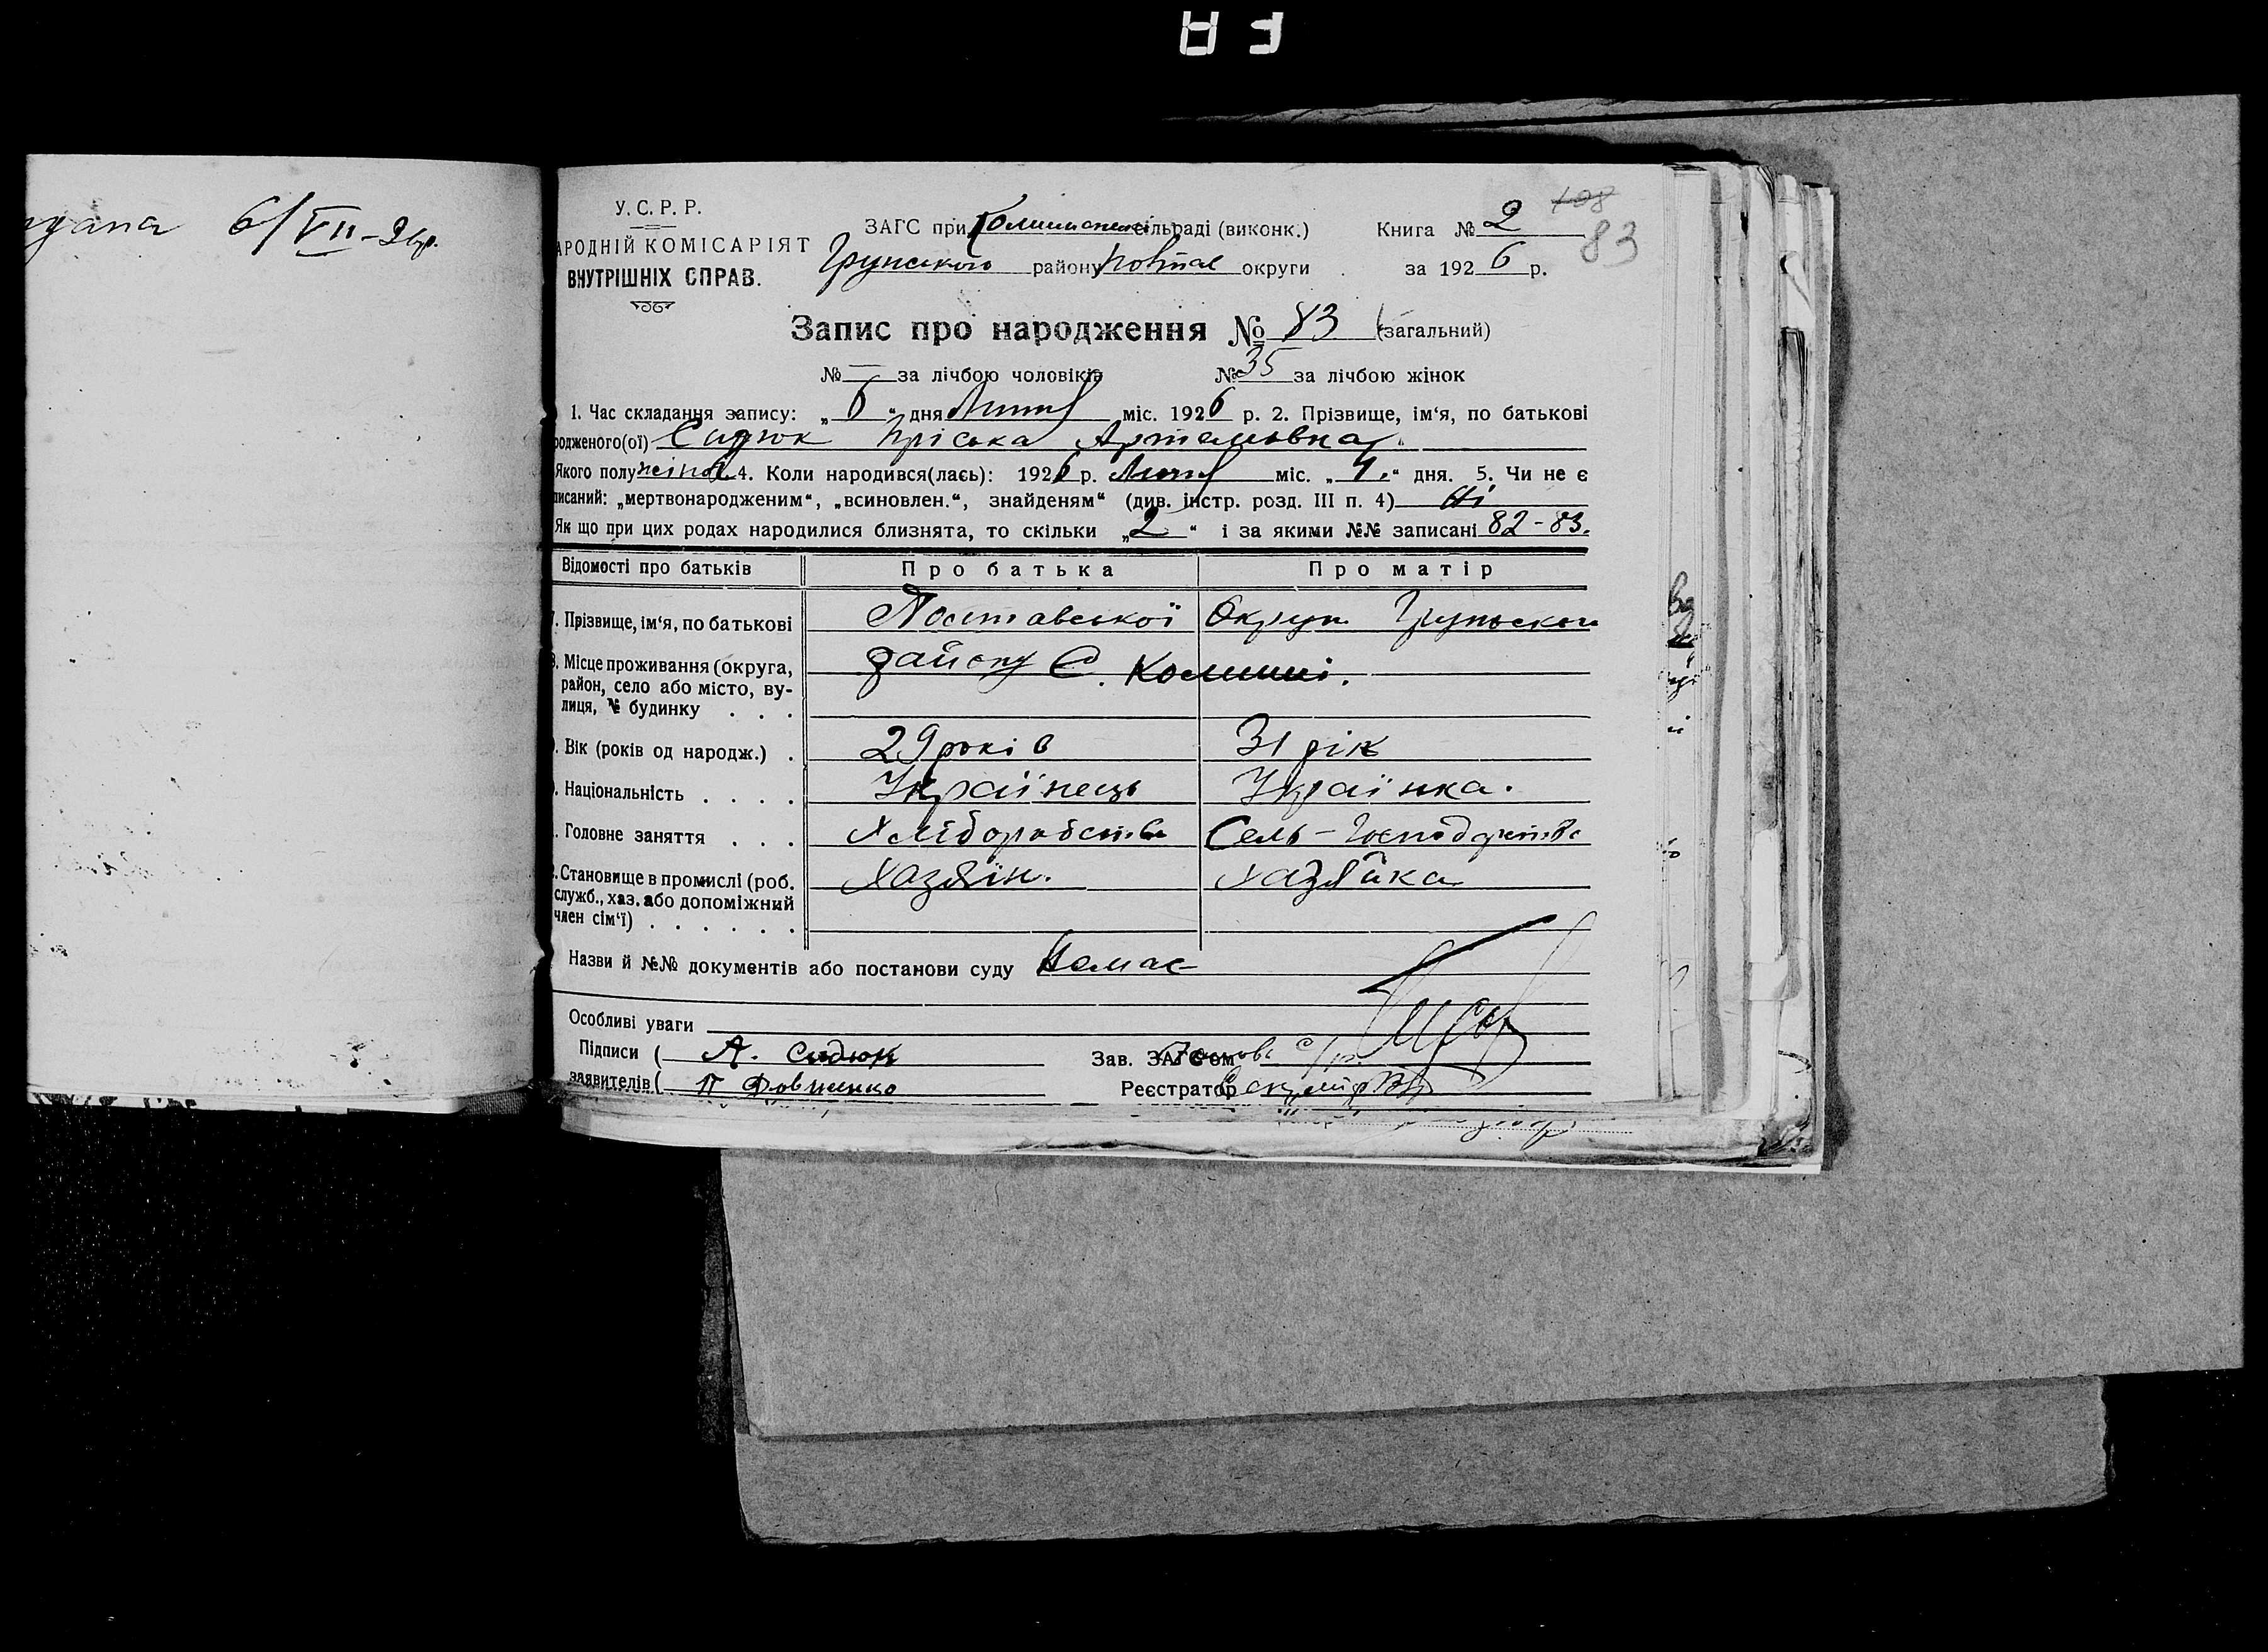 8 3
6/VII-26р.
У. С. Р. Р.
АРОДНІЙ КОМІСАРІЯТ
ВНУТРІШНІХ СПРАВ.
ЗАГС при сільраді (виконк.)
Книга № 2
108
83
Грунського району Полтав округи
за 1926 р.
Запис про народження № 83 (загальний)
№ — за лічбою чоловіків № 35 за лічбою жінок
1. Час складання запису: „6“ дня Липня міс. 1926 р. 2. Прізвище, ім‘я, по батькові
родженого(ої) Сидюк Пріська Артемовна
Якого полу жіноч. 4. Коли народився(лась): 1926 р. Липня міс. „4.“ дня. 5. Чи не є
писаний: „мертвонародженим“, „всиновлен.“, знайденям“ (див. інстр. розд. III п. 4) Ні
Як що при цих родах народилися близнята, то скільки „2“ і за якими №№ записані 82-83.
Відомості про батьків
Про батька
Про матір
7. Прізвище, ім‘я, по батькові
Полтавської Округи Грунського
8. Місце проживання (округа,
район, село або місто, ву-
лиця, № будинку . . .
району С.
. Вік (років од народж.) .
29 років
31 рік
. Національність . . . .
Українець
Українка.
. Головне заняття . . .
Хліборобство
Сель-Господарство
. Становище в промислі (роб.
служб., хаз. або допоміжний
член сім‘ї) . . . . . .
Хазяїн.
Хазяйка
Назви й №№ документів або постанови суду Немає
Особливі уваги
Підписи ( А. Сидюк
Зав. ЗАГС‘ом
заявителів ( П Довженко
Реєстратор